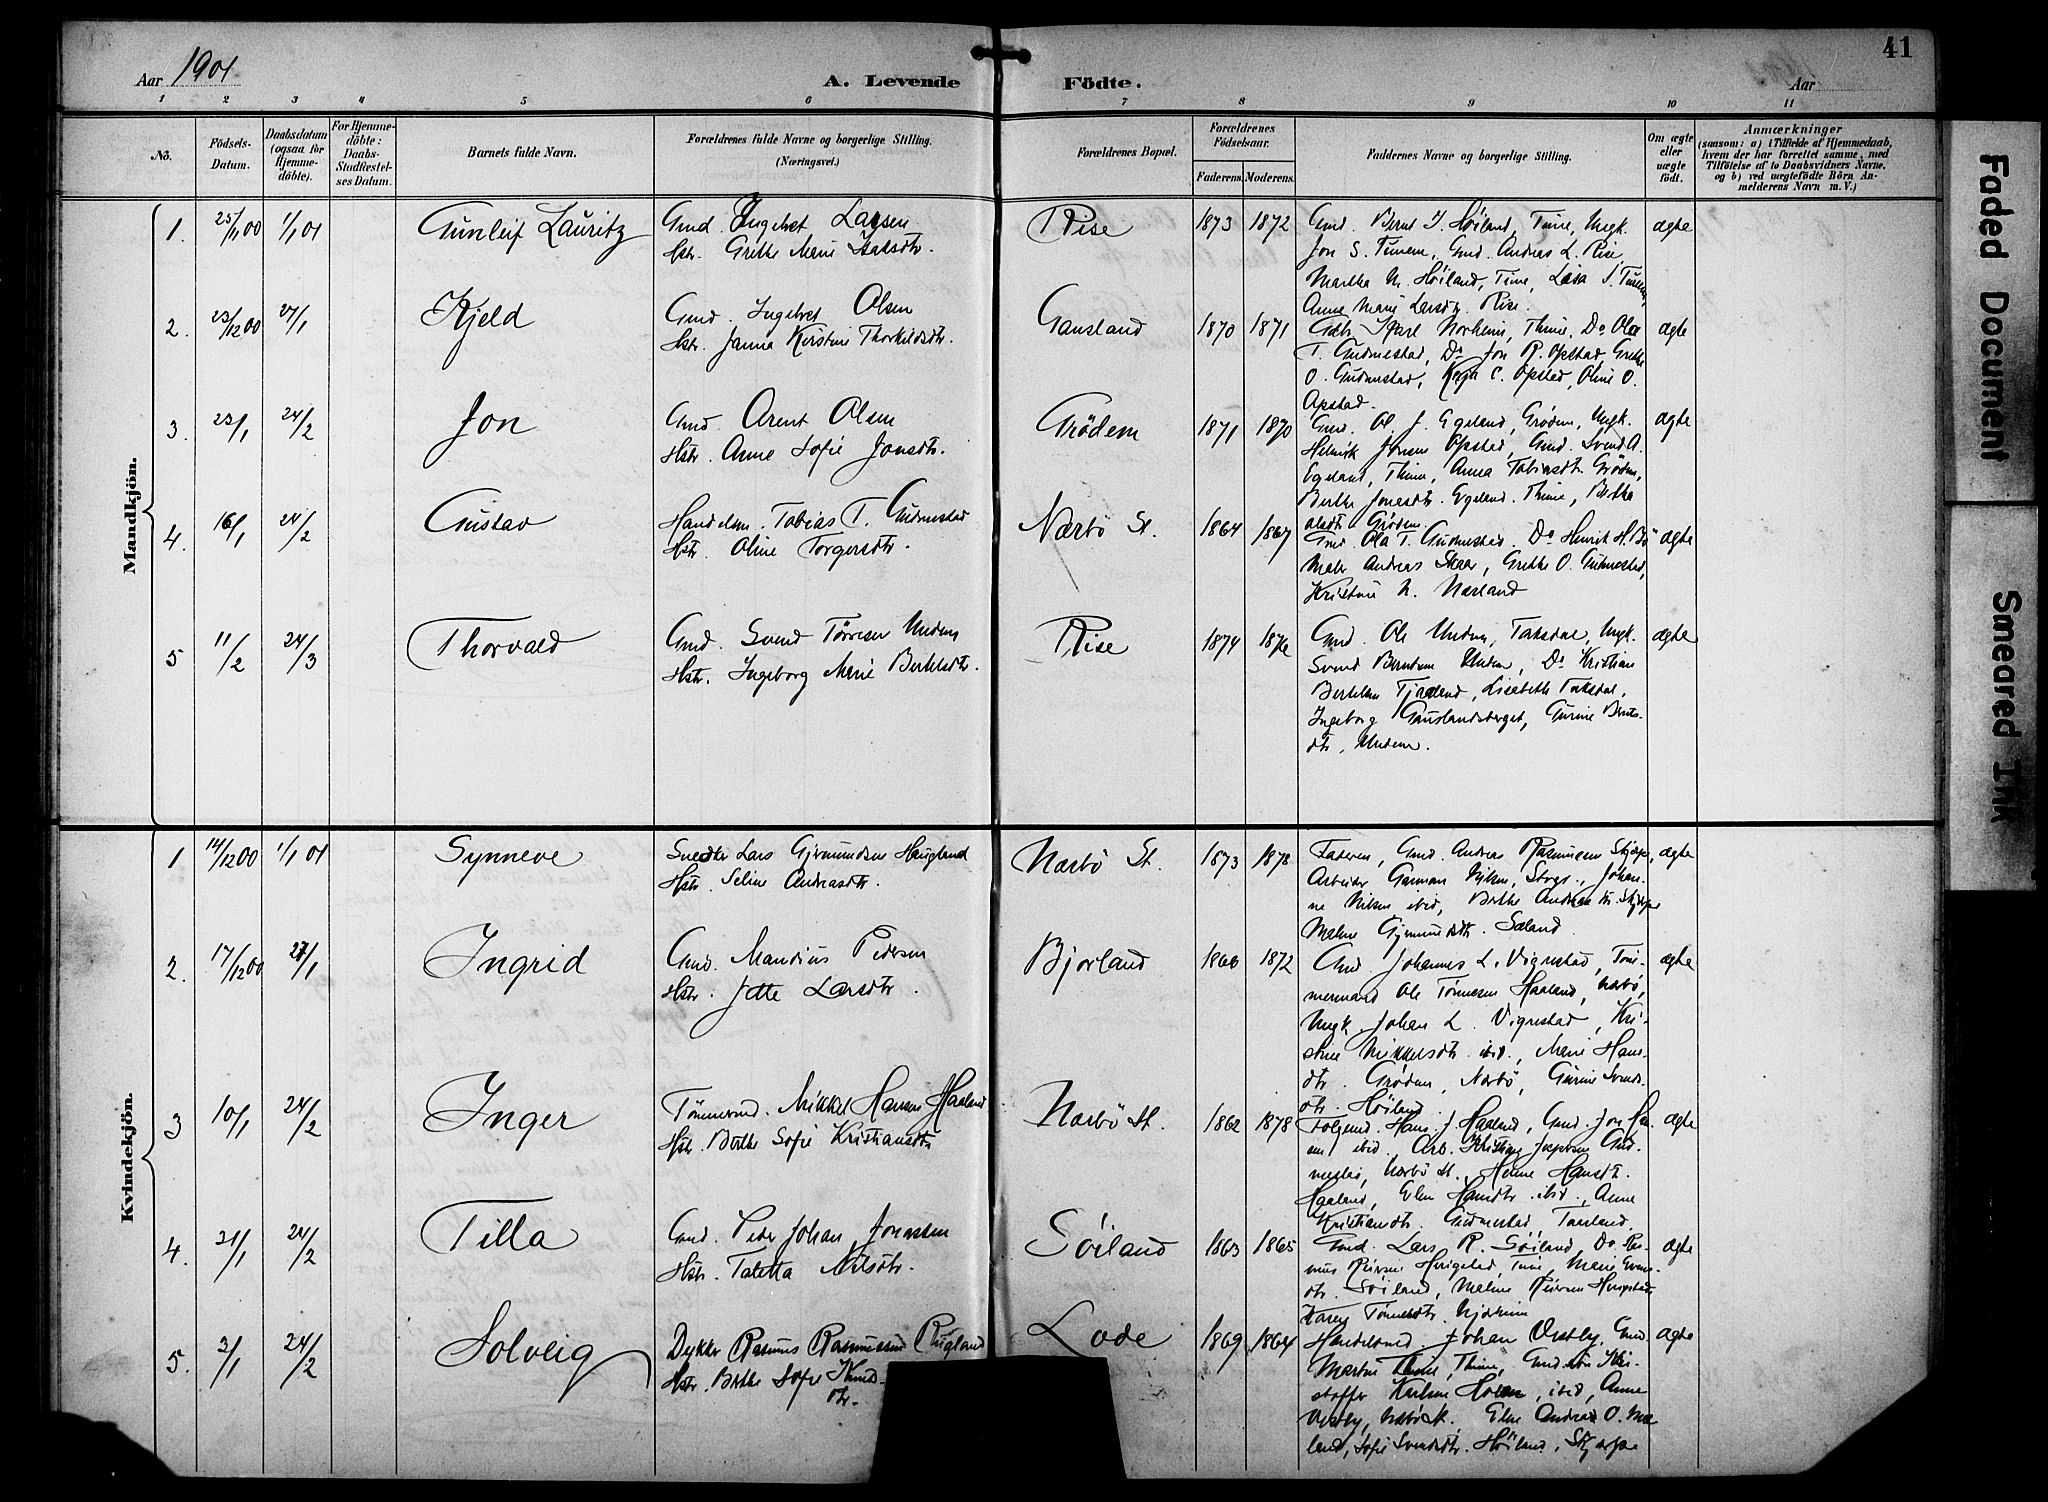 41
Aar 1901
A. Levende Födte.
Aar
1 2 3 4 5 6 7 8 9 10 11
No.
Födsels-Datum.
Daabsdatum (ogsaa for Hjemme-döbte).
For Hjemme-döbte: Daabs-Stadfæstel-ses Datum.
Barnets fulde Navn.
Forældrenes fulde Navne og borgerlige Stilling. (Næringsvei.)
Forældrenes Bopæl.
Forældrenes Födselsaar.
Faderens. Moderens.
Faddernes Navne og borgerlige Stilling.
Om ægte eller uægte födt.
Anmærkninger
(saasom: a) i Tilfælde af Hjemmedaab, hvem der har forrettet samme, med Tilföielse af to Daabsvidners Navne, og b) ved uægtefödte Börn An-melderens Navn m. V.)
Mandkjön.
1. 25/11 00 1/1 01 Gunleif Lauritz
Gmd. Ingebret Larsen
Hstr. Grethe Marie Isaksdtr.
Rise 1873 1872
Gmd. Bernt J. Høiland, Time, Ungk.
Jon S. Tunem, Gmd. Andreas L. Rise
Martha M. Høiland, Time,
Anne Marie Larsdtr. Rise.
ægte
2. 23/12 00 27/1 Kjeld
Gmd. Ingebret Olsen
Hstr. Janna Kirstine Thorkildsdtr.
Gausland 1870 1871
Norheim, Thime, Do Ola
T. Gudmestad, Do Jon R. Opstad, Grethe
O. Gudmestad, C. Opsted, Oline O.
Opstad.
ægte
3. 23/1 24/2 Jon
Gmd. Arent Olsen
Hstr. Anne Sofie Jonsdtr.
Grödem 1871 1870
Gmd. Ol. J. Egeland, Grödem, Ungk.
Henrik Jonsen Opsted, Gmd. Svend A.
Egeland, Thime, Anna Tobiasdtr. Grödem,
Berthe Jonasdtr. Egeland. Thime, Berthe
Olsdtr. Grödem.
ægte
4. 16/1 24/2 Gustav
Handelsm. Tobias T. Gudmestad
Hstr. Oline Torgersdtr.
Nærbö St. 1864 1867
Gmd. Ola T. Gudmestad. Do Henrik H. Bö
Maler Andreas Skaar, Grethe O. Gudmestad,
Kristine N. Nærland
ægte
5 11/2 24/3 Thorvald
Gmd. Svend Tørresen Undem
Hstr. Ingeborg Marie Bertelsdtr.
Rise 1874 1876
Gmd. Ole Undem, Taksdal, Ungk.
Svend Berntsen Undem, Do Kristian
Bertelsen Tjaaland, Lisabeth Taksdal,
Ingeborg Gauslandsberget, Gurine Bernts-
dtr, Undem.
ægte
Kvindekjön.
1 14/12 00 1/1 01 Synneve
Snedker Lars Gjermundsen Haugland
Hstr. Seline Andreasdtr.
Nærbö St. 1873 1878
Faderen, Gmd. Andreas Rasmussen Skjærpe,
Arbeider Garman Nilsen, Stvgr., Johan-
ne Nilsen ibid, Berthe Andreasdtr. Skjærpe
Malene Gjermundsdtr. Søland.
ægte
2. 17/12 00 27/1 Ingrid
Gmd. Mandius Pedersen
Hstr. Jette Larsdtr.
Bjorland 1866 1872
Gmd. Johannes L. Vigrestad, Töm-
mermand Ole Tönnesen Haaland, Nærbö,
Ungk. Johan L. Vigrestad, Kri-
stine Mikkelsdtr. ibid., Marie Hans-
dtr. Grödem, Nærbö, Gurine Svends-
dtr. Höiland.
ægte
3 10/1 24/2 Inger
Tömmermd. Mikkel Hansen Haaland
Hstr. Berthe Sofie Kristiansdtr.
Nærbö St. 1862 1878
Folgemd. Hans J. Haaland, Gmd. Jon Han-
sen ibid. Arb. Kristian Jaspersen Gud-
mestad, Nærbö St., Helene Hansdtr.
Haaland, Elen Hansdtr. ibid., Anne
Kristiansdtr. Gudmestad,
ægte
4. 21/1 24/2 Tilla
Gmd. Peder Johan Jonassen
Hstr. Taletta Nilsdtr.
Söiland 1863 1865
Gmd. Lars R. Söiland, Do Ras-
mus Reiersen Herigstad, Time, Marie Svens-
dtr. Söiland, Malene Reiersen Herigstad,
Karen Tönnesdtr. Njærheim
ægte
5. 2/1 24/2 Solveig
Dykker Rasmus Rasmussen Rugland
Hstr. Berthe Sofie Knuds-
dtr.
Lode 1869 1864
Handelsmd. Johan Vestly, Gmd.
Martin Time, Thime, Gmd. Kri-
stoffer Karlsen Holen, ibid, Anne
Vestly, Nærbö St. Elen Andrea O. Mæ-
land, Sofie Svendsdtr. Höiland, Skjærpe
ægte
Faded Document
Smeared Ink